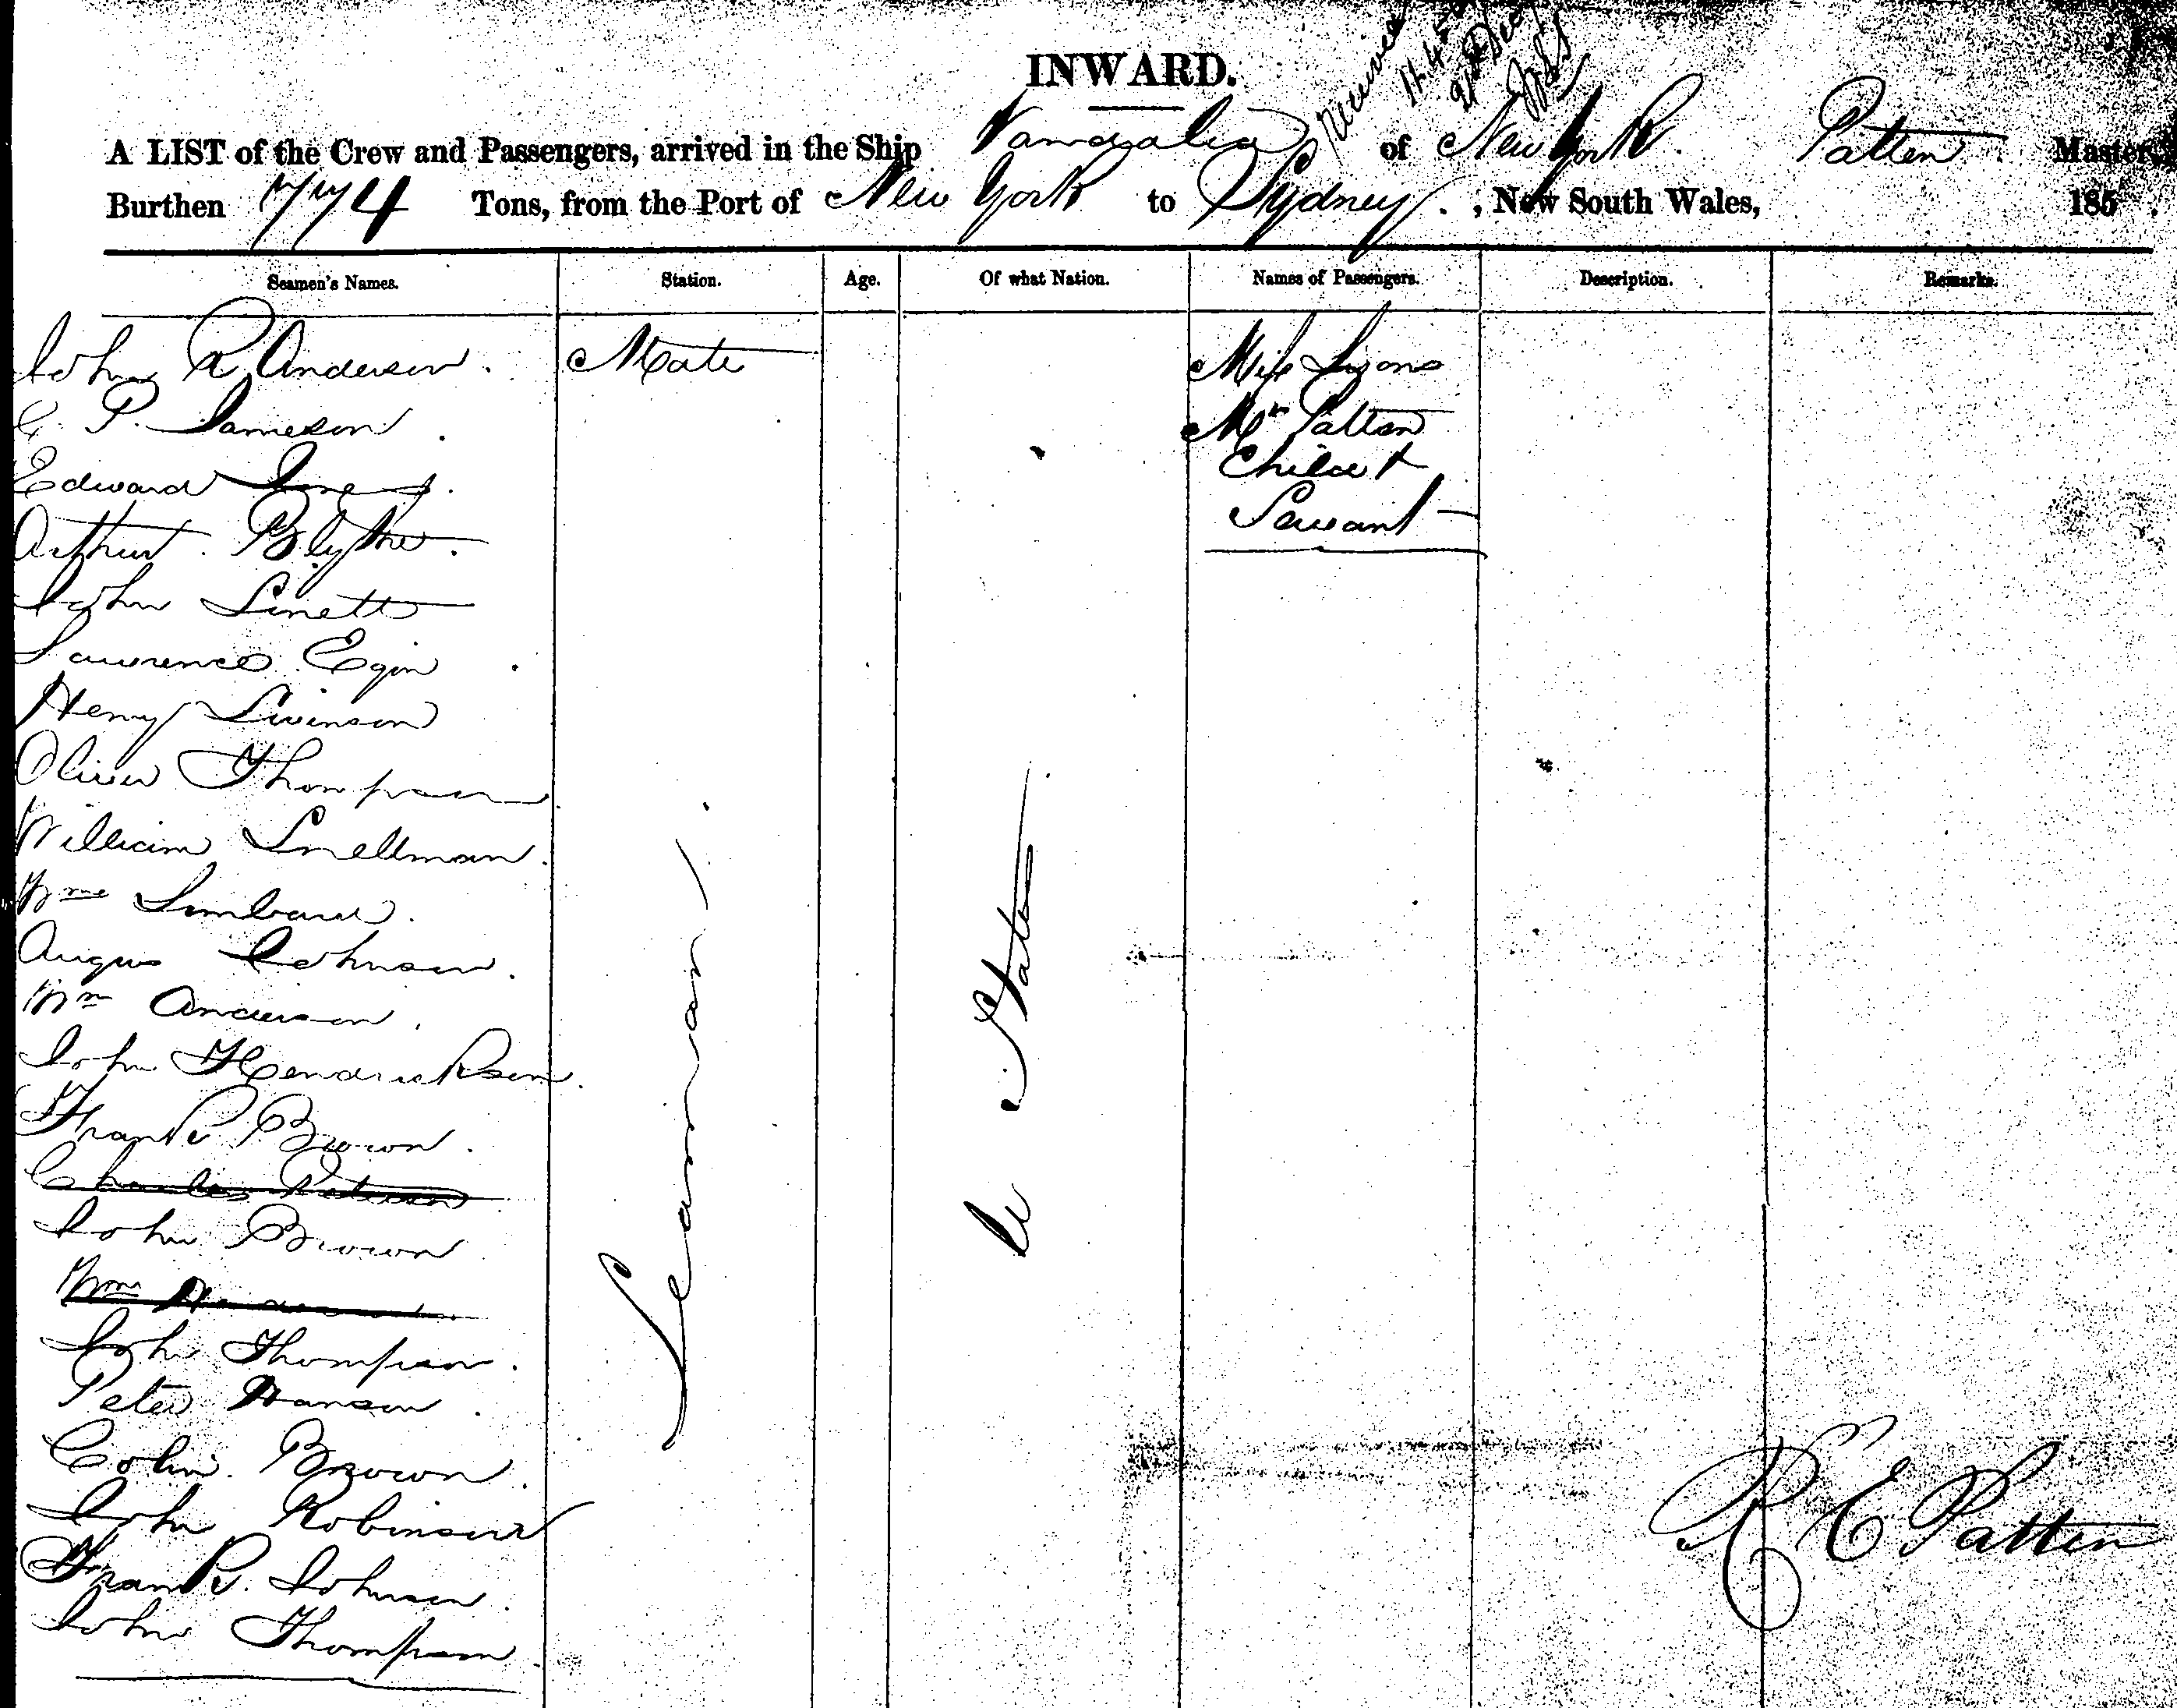 INWARD.
Received
A LIST of the Crew and Passengers, arrived in the Ship Vancealia of New York Patten Master,
Burthen 774 Tons, from the Port of New York to Sydney, New South Wales, 185 .
Seamen's Names. Station. Age. Of what Nation. Names of Passengers. Description. Remarks.
John R Anderson. Mate Miss Lyons
C. P. Jameson. Mrs Patten
Edward Jones. Child &
Arthur Blythe. Servant
John Linett
Lawrence Egin
Henry Swinson
Oliver Thompson
William Snellman.
Wm Limbard.
Angus Johnson.
Wm Anderson.
John Hendrickson.
Frank Brown.
Charles Peterson
John Brown
Wm
John Thompson.
Peter Hanson.
Colin Brown.
John Robinson
Frank Johnson.
John Thompson.
Seaman
U States
R E Patten